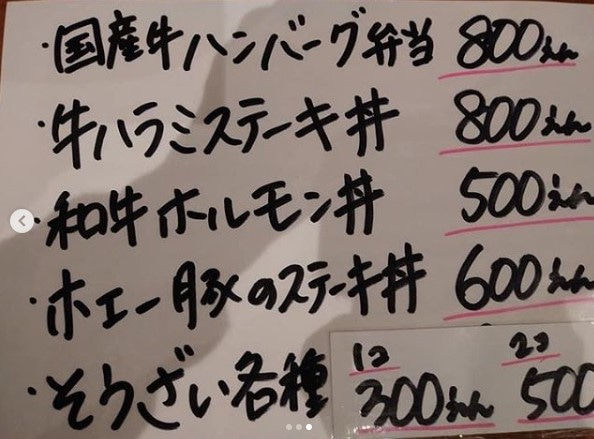 ・国産牛ハンバーグ弁当 800えん
・牛ハラミステーキ丼 800えん
・和牛ホルモン丼 500えん
・ホエー豚のステーキ丼 600えん
・そうざい各種 1コ 300えん 2コ 500